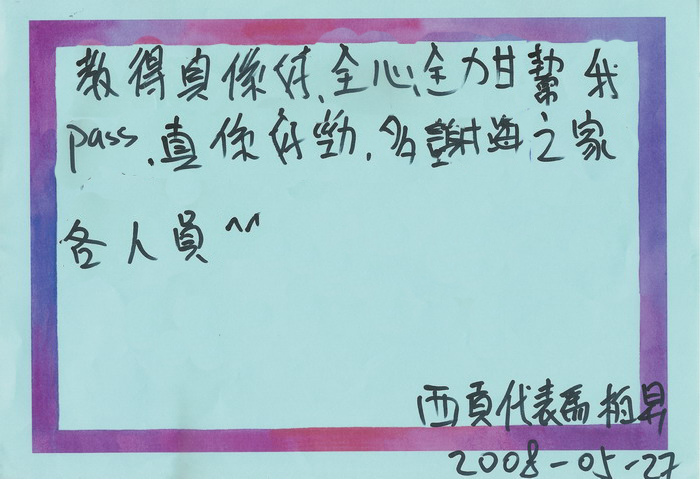 教得真係好,全心全力甘幫我
pass,真係好勁,多謝海之家
各人員^^
西貢代表馮柏昇
2008-05-27